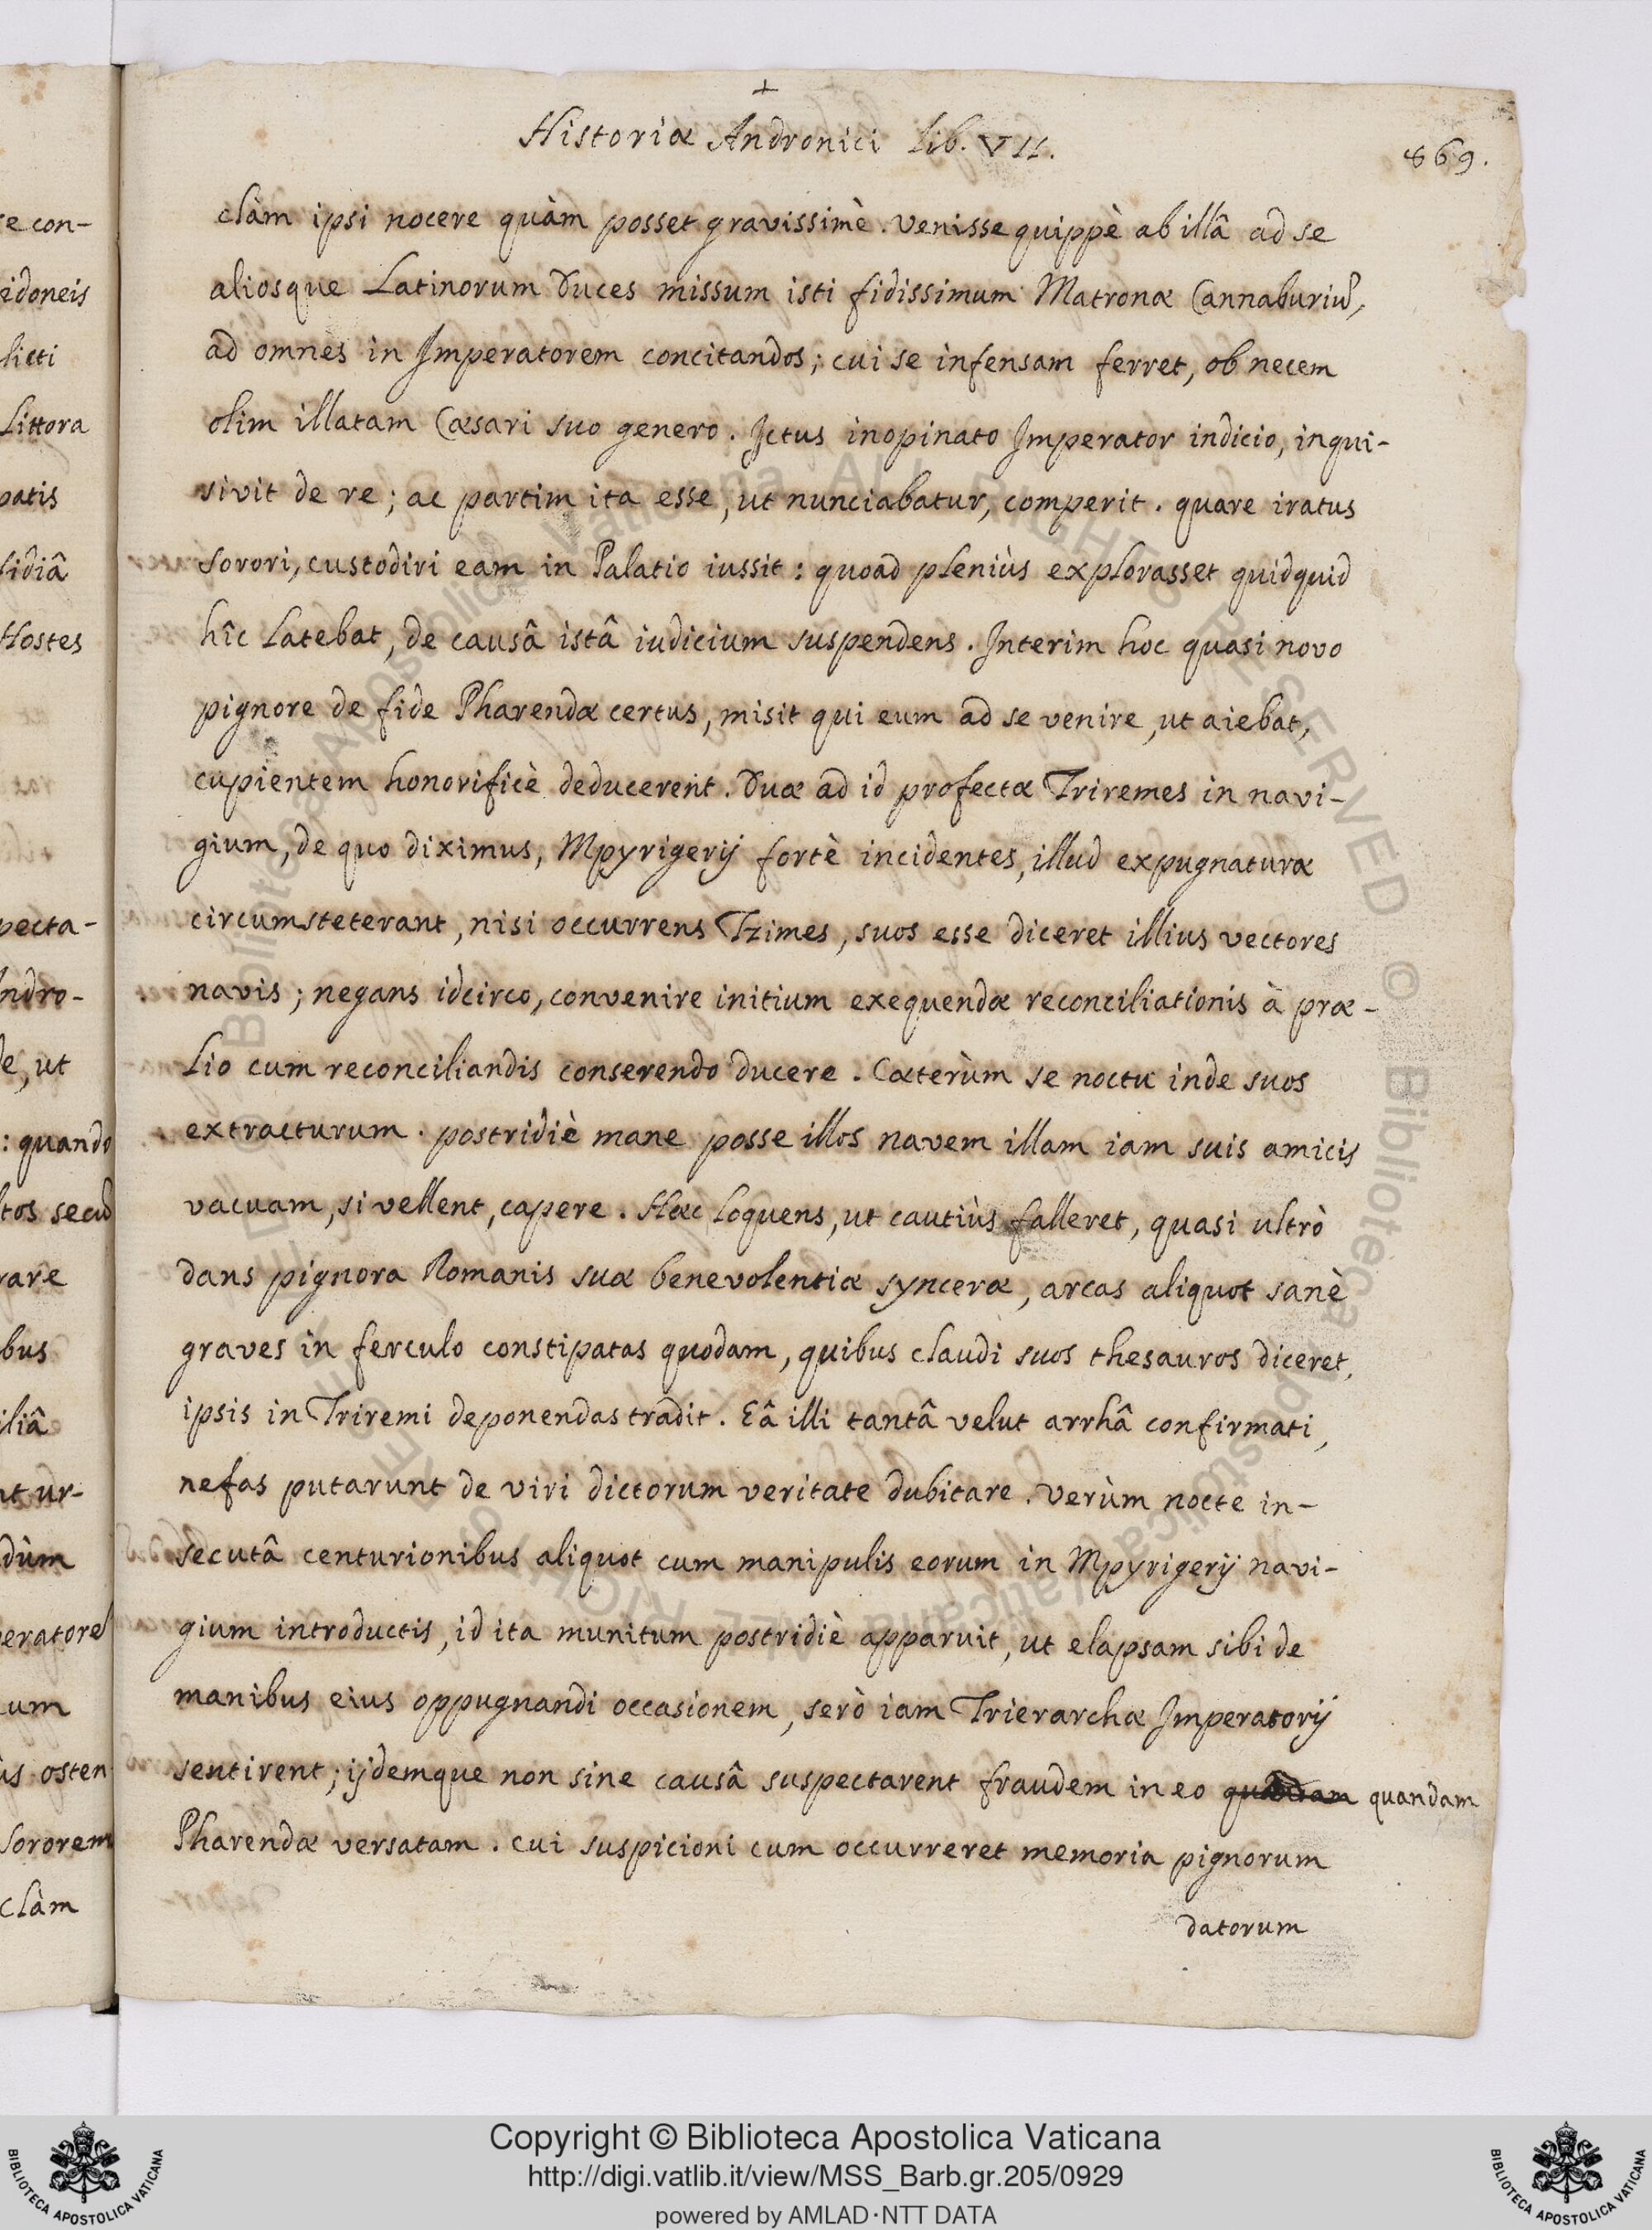 +
Historiæ Andronici Lib. VII.
869.
clàm ipsi nocere quàm posset gravissimè. Venisse quippè ab illâ ad se
aliosque Latinorum Duces missum isti fidissimum Matronæ Cannaburiũ,
ad omnes in Imperatorem concitandos; cui se infensam ferret, ob necem
olim illatam Cæsari suo genero. Ictus inopinato Imperator indicio, inqui-
sivit de re; ac partim ita esse, ut nunciabatur, comperit. quare iratus
sorori, custodiri eam in Palatio iussit: quoad pleniùs explorasset quidquid
hîc latebat, de causâ istâ iudicium suspendens. Interim hoc quasi novo
pignore de fide Pharendæ certus, misit qui eum ad se venire, ut aiebat,
cupientem honorificè deducerent. Duæ ad id profectæ Triremes in navi-
gium, de quo diximus, Mpyrigerij fortè incidentes, illud expugnaturæ
circumsteterant, nisi occurrens Tzimes, suos esse diceret illius vectores
navis; negans idcirco, convenire initium exequendæ reconciliationis à præ-
lio cum reconciliandis conserendo ducere. Cæterùm se noctu inde suos
extracturum. postridiè mane posse illos navem illam iam suis amicis
vacuam, si vellent, capere. Hæc loquens, ut cautiùs falleret, quasi ultrò
dans pignora Romanis suæ benevolentiæ synceræ, arcas aliquot sanè
graves in ferculo constipatas quodam, quibus claudi suos thesauros diceret,
ipsis in Triremi deponendas tradit. Eâ illi tantâ velut arrhâ confirmati,
nefas putarunt de viri dictorum veritate dubitare. Verùm nocte in-
secutâ centurionibus aliquot cum manipulis eorum in Mpyrigerij navi-
gium introductis, id ita munitum postridiè apparuit, ut elapsam sibi de
manibus eius oppugnandi occasionem, serò iam Trierarchæ Imperatorij
sentirent; ijdemque non sine causâ suspectarent fraudem in eo quandam
Pharendæ versatam. cui suspicioni cum occurreret memoria pignorum
datorum
e con-
idoneis
licti
Littora
patis
fidiâ
Hostes
pecta-
ndro-
e, ut
: quando
tos secũ
rare
bus
iliâ
nt ur-
dùm
peratorẽ
um
is osten
sororem
clàm
Copyright © Biblioteca Apostolica Vaticana
http://digi.vatlib.it/view/MSS_Barb.gr.205/0929
powered by AMLAD·NTT DATA
BIBLIOTECA APOSTOLICA VATICANA
BIBLIOTECA APOSTOLICA VATICANA